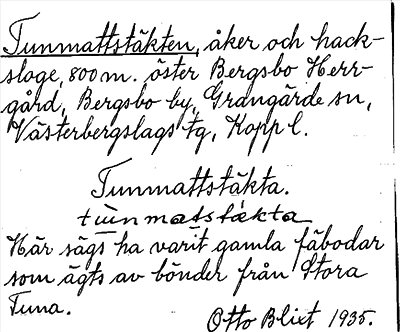 Tunmattstäkten, åker och hack-
sloge, 800 m. öster Bergsbo Herr-
gård, Bergsbo by, Grangärde sn,
Västerbergslags tg, Kopp l.
Tunmattstäkta.
tùnmatstäkta
Här sägs ha varit gamla fäbodar
som ägts av bönder från Stora
Tuna.
Otto Blixt 1935.